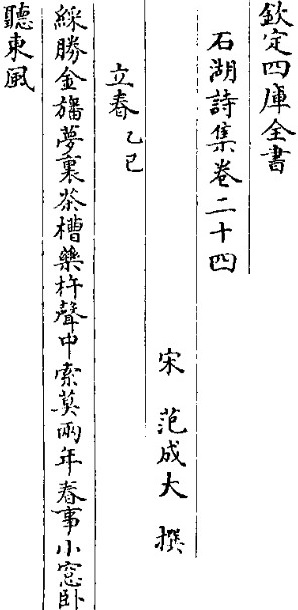 欽定四庫全書
石湖詩集卷二十四
宋 范成大 撰
立春乙巳
綵勝金旛夢裏茶槽藥杵聲中索莫兩年春事小窓卧
聽東風